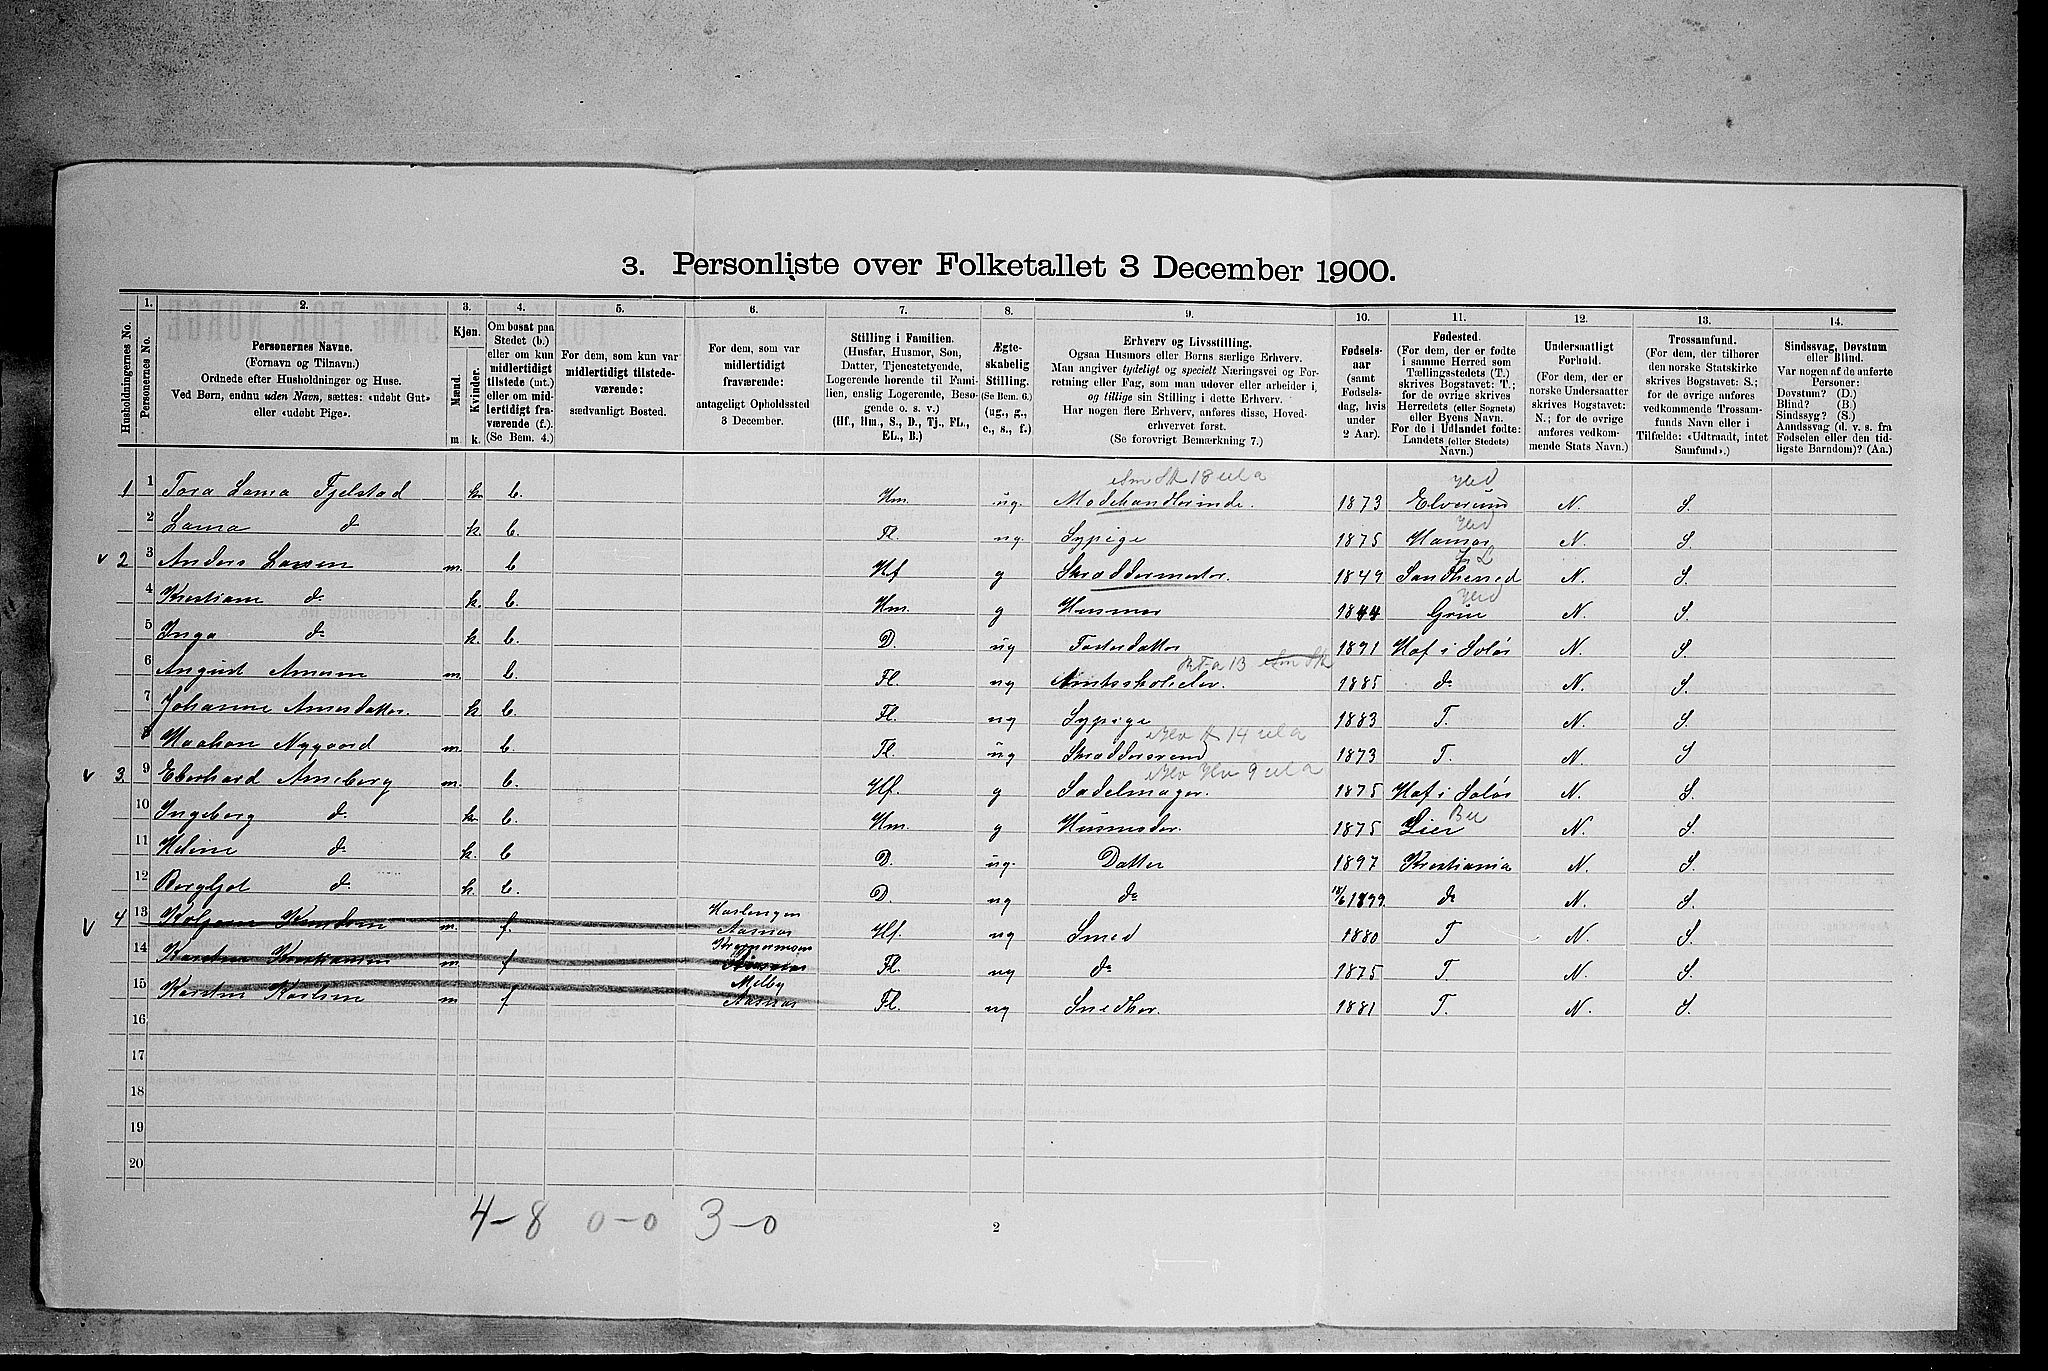 3. Personliste over Folketallet 3 December 1900.
Husholdningernes No.
1. Personernes No.
2. Personernes Navne. (Fornavn og Tilnavn.) Ordnede efter Husholdninger og Huse. Ved Børn, endnu uden Navn, sættes: «udøbt Gut» eller «udøbt Pige».
3. Kjøn. Mænd. m. Kvinder. k.
4. Om bosat paa Stedet (b.) eller om kun midlertidigt tilstede (mt.) eller om midlertidigt fraværende (f.). (Se Bem. 4.)
5. For dem, som kun var midlertidigt tilstedeværende: sædvanligt Bosted.
6. For dem, som var midlertidigt fraværende: antageligt Opholdssted 3 December.
7. Stilling i Familien. (Husfar, Husmor, Søn, Datter, Tjenestetyende, Logerende hørende til Familien, enslig Logerende, Besøgende o. s. v.) (Hf., Hm., S., D., Tj., FL., EL., B.)
8. Ægteskabelig Stilling. (Se Bem. 6.) (ug., g., e., s., f.)
9. Erhverv og Livsstilling. Ogsaa Husmors eller Børns særlige Erhverv. Man angiver tydeligt og specielt Næringsvei og Forretning eller Fag, som man udover eller arbeider i, og tillige sin Stilling i dette Erhverv. Har nogen flere Erhverv, anføres disse, Hovederhvervet først. (Se forøvrigt Bemærkning 7.)
10. Fødselsaar (samt Fødselsdag, hvis under 2 Aar).
11. Fødested. (For dem, der er fødte i samme Herred som Tællingsstedets (T.) skrives Bogstavet: T.; for de øvrige skrives Herredets (eller Sognets) eller Byens Navn. For de i Udlandet fødte: Landets (eller Stedets) Navn.)
12. Undersaatligt Forhold. (For dem, der er norske Undersaatter skrives Bogstavet: N.; for de øvrige anføres vedkommende Stats Navn.)
13. Trossamfund. (For dem, der tilhører den norske Statskirke skrives Bogstavet: S.; for de øvrige anføres vedkommende Trossamfunds Navn eller i Tilfælde: «Udtraadt, intet Samfund».)
14. Sindssvag, Døvstum eller Blind. Var nogen af de anførte Personer: Døvstum? (D.) Blind? (B.) Sindssyg? (S.) Aandssvag (d. v. s. fra Fødselen eller den tidligste Barndom)? (Aa.)
1 1 Tora Fjelstad k. b. Hm. ug. Modehandlerinde. 1873 Elverum N. S.
2 do k. b. Fl. ug. Sypige 1875 Hamar N. S.
v 2 3 Anders Larsen m. b Hf g Skræddermester. 1849 N. S.
4 do k. b. Hm. g Husmor 1844 Grue N. S.
5 Inga do k. b. D. ug Fosterdatter 1891 Hof i Solør N. S.
6 m b. Fl. ug 1885 do N. S.
7 Johanne k b. Fl. ug Sypige 1883 T. N. S.
8 Haakon Nygaard m. b. Fl. ug Skræddersvend 1873 T. N. S
v 3. 9 Eberhard Arneberg m. b. Hf. g Sadelmager. 1875 Hof i Solør N. S.
10 Ingeborg do k b. Hm. g Husmoder. 1875 Lier N. S.
11 Helene do k. b D. ug. Datter 1897 Kristiania N. S.
12 Bergljot do k. b. D ug do 18/6 1899. do N. S.
v 4 13 m. f. Aasnes Hf. ug Smed 1880 T N. S.
14 m f Fl. ug do 1875 T N. S.
15 Karlsen m f Melby Aasnes Fl. ug Snedker. 1881 T. N. S.
16
17
18
19
20
4-8 0-0 3-0
2